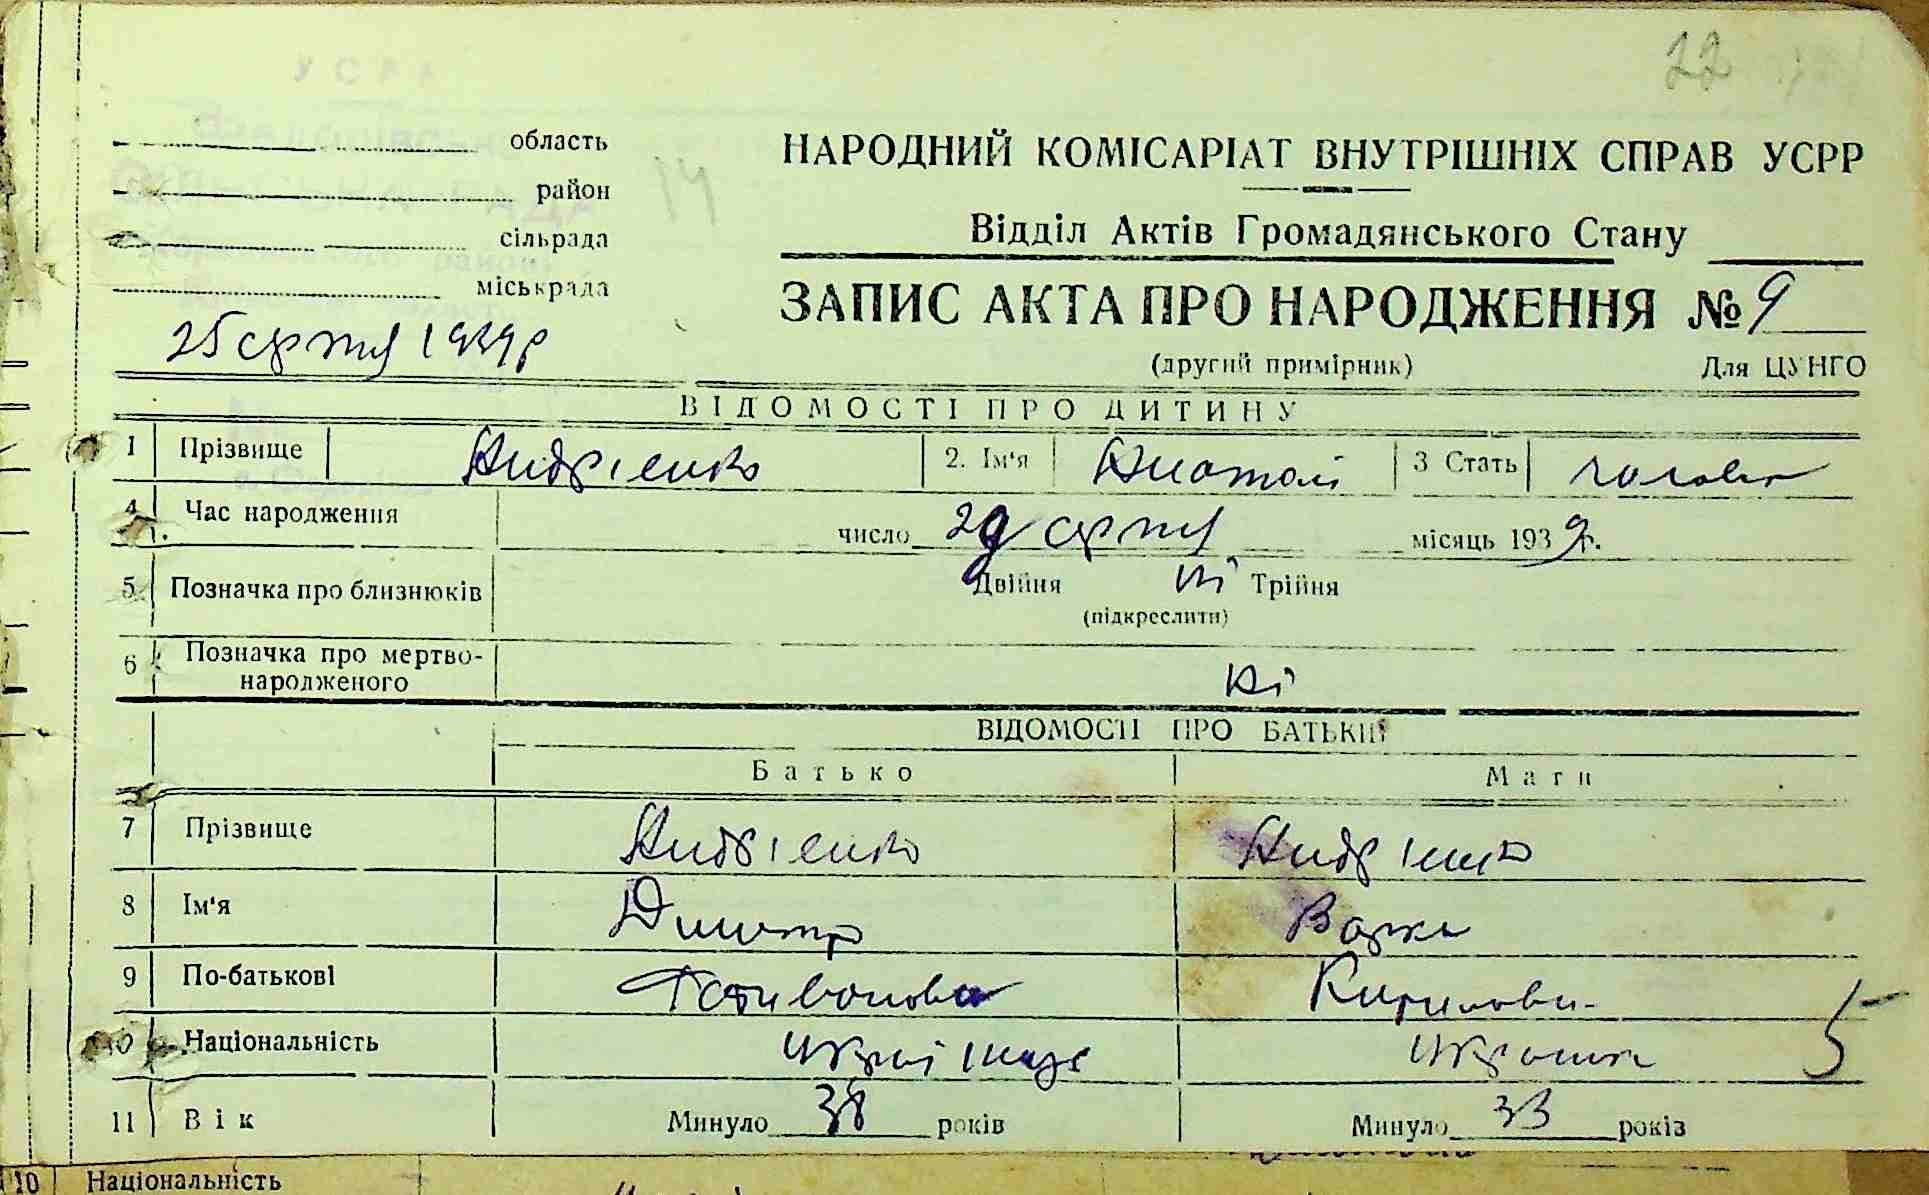 22
область
район
14
сільрада
міськрада
НАРОДНИЙ КОМІСАРІАТ ВНУТРІШНІХ СПРАВ УСРР
Відділ Актів Громадянського Стану
ЗАПИС АКТА ПРО НАРОДЖЕННЯ № 9
(другий примірник) Для ЦУНГО
25 серпня 1939 р
ВІДОМОСТІ ПРО ДИТИНУ
1 Прізвище Андрієнко 2. Ім'я Анатолі 3 Стать
4 Час народження число серпня місяць 1939 р.
5 Позначка про близнюків Двійня ні Трійня
(підкреслити)
6 Позначка про мертво-
народженого ні
ВІДОМОСТІ ПРО БАТЬКІВ
Батько Мати
7 Прізвище Андрієнко Андрієнко
8 Ім'я Дмитр Варка
9 По-батькові Кирилови-
10 Національність 5
11 Вік Минуло 38 років Минуло 33 років
10 Національність